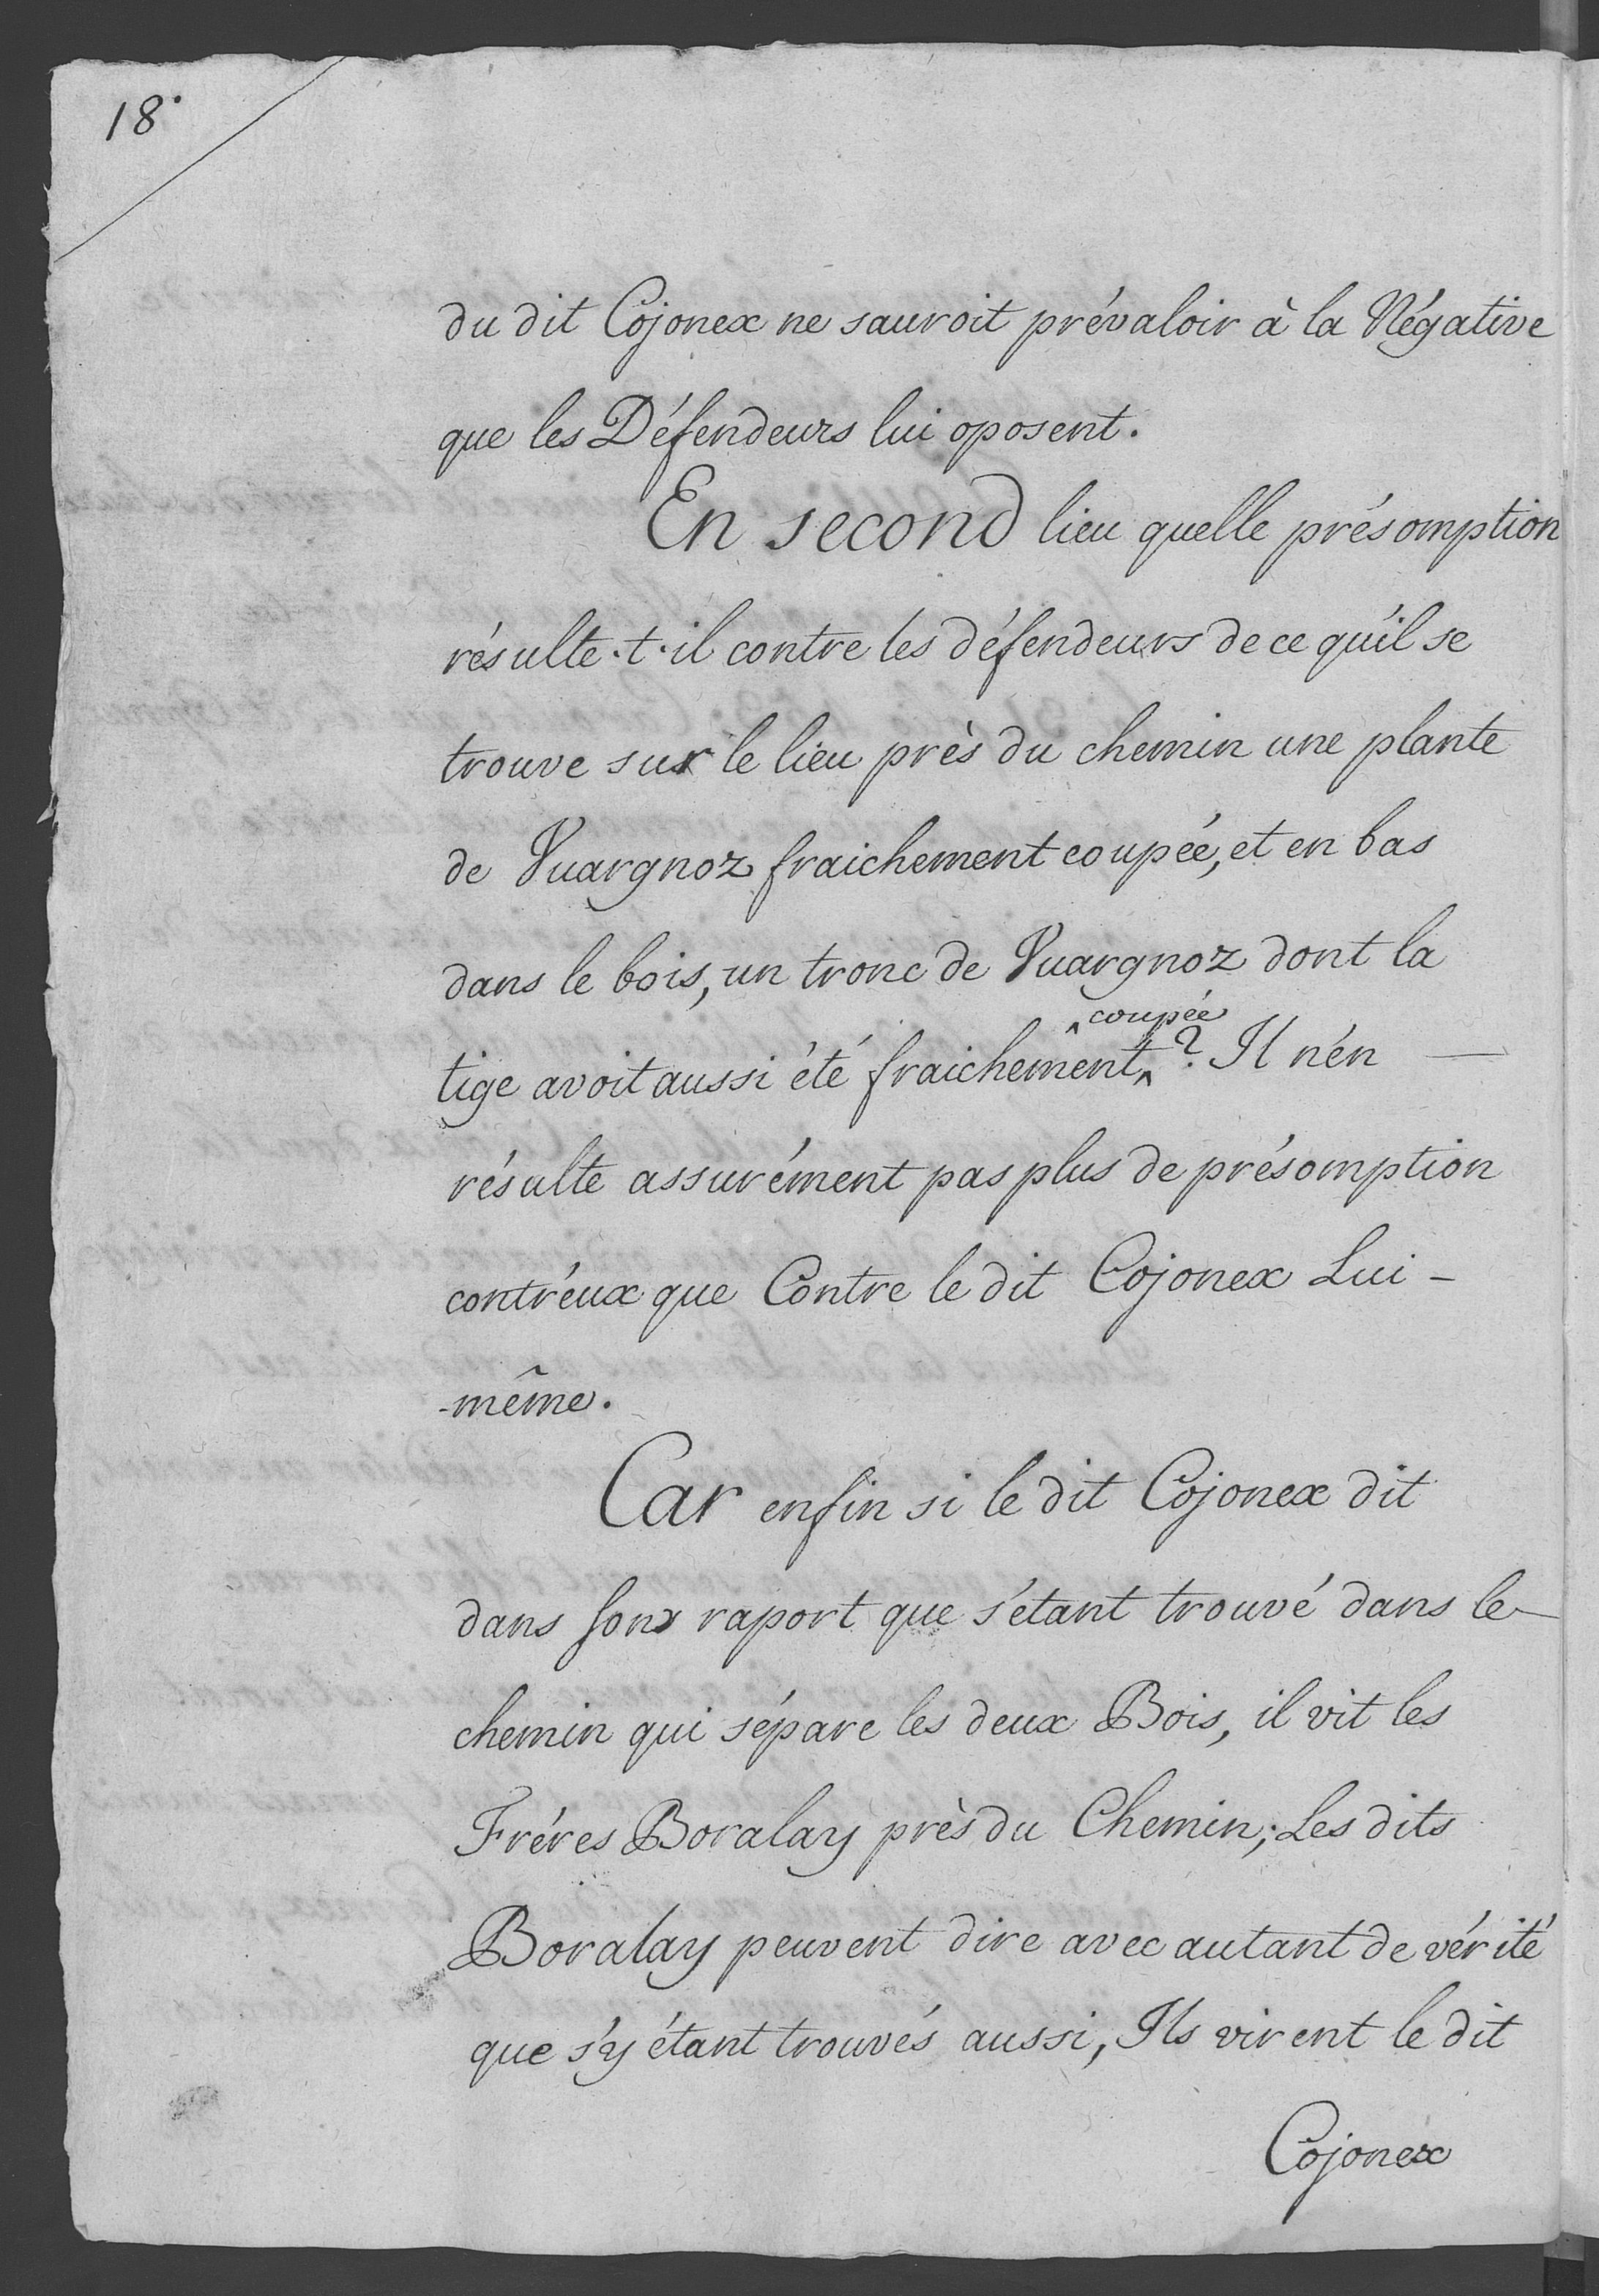 18.
du dit Cojonex ne sauroit prévaloir à la Négative
que les Défendeurs lui oposent.
En second lieu quelle présomption
résulte-t-il contre les défendeurs de ce qu'il se
trouve sur le lieu près du chemin une plante
de Vuargnoz fraichement coupée, et en bas
dans le bois, un tronc de Vuargnoz dont la
^coupée
tige avoit aussi été fraichement^? Il n'en —
résulte assurément pas plus de présomption
contr'eux que Contre le dit Cojonex Lui-
-même.
Car enfin si le dit Cojonex dit
dans son raport que s'étant trouvé dans le
chemin qui sépare les deux Bois, il vit les
Fréres Boralay près du Chemin; Les dits
Boralay peuvent dire avec autant de vérité
que s'y étant trouvés aussi, Ils virent le dit
Cojonex